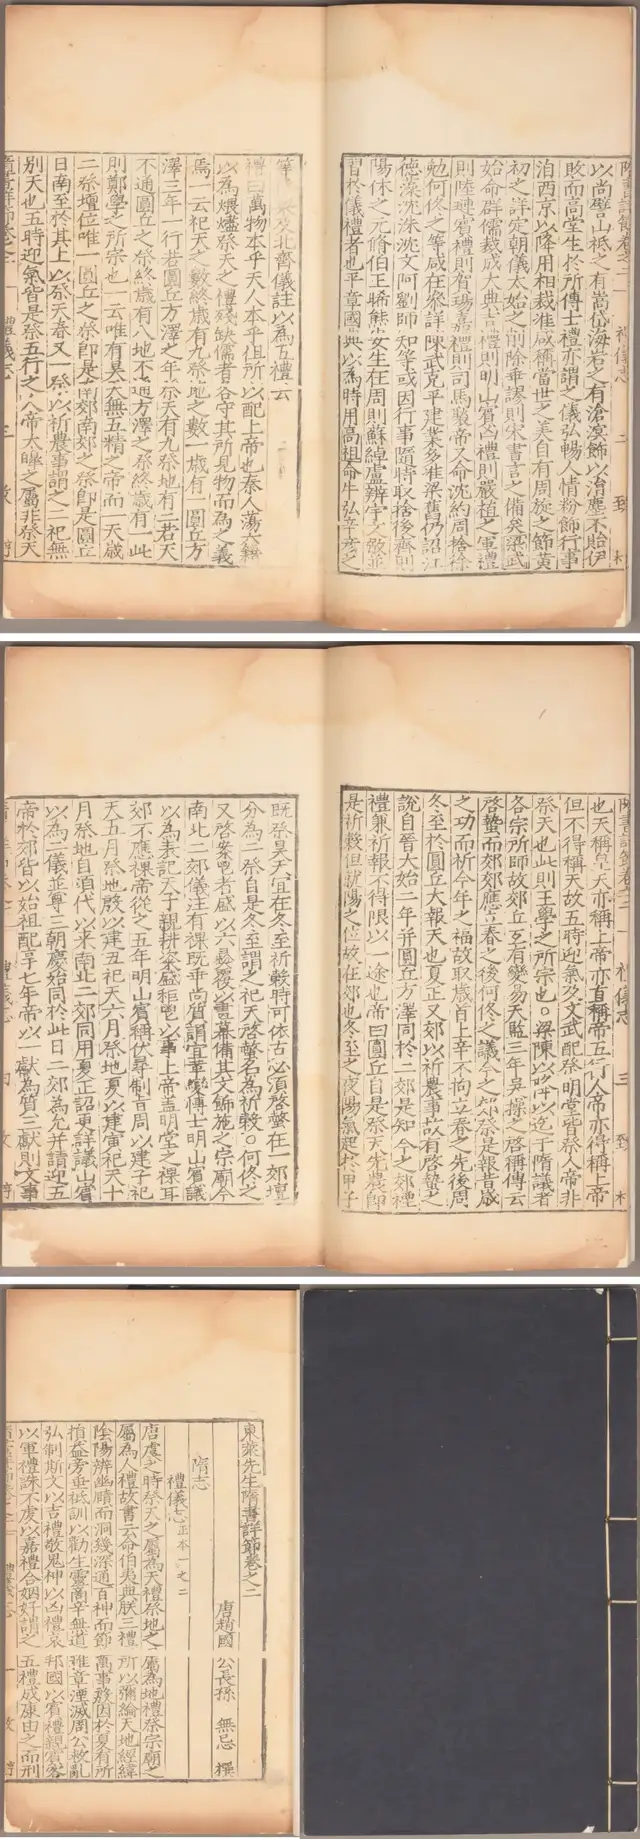 隋書詳節卷之二　禮儀志　二　致　村
以尚譬山祗之有嵩岱海若之有滄溟飾以消塵不貽伊
敗而高堂生於所傳士禮亦謂之儀弘暢人情粉飾行事
洎西京以降用相裁准咸稱當世之美自有周旋之節黃
初之詳定朝儀太始之削除乖謬則宋書言之備矣梁武
始命群儒裁成大典吉禮則明山賓凶禮則嚴植之軍禮
則陸璉賓禮則賀瑒嘉禮則司馬褧帝又命沈約周捨徐
勉何佟之等咸在參詳陳武克平建業多准梁舊仍詔江
德藻沈洙沈文阿劉師知等或因行事隨時取捨後齊則
陽休之元脩伯王晞熊安生在周則蘇綽盧辯宇文並
習於儀禮者也平章國典以為時用高祖命牛弘辛彥之
等采及北齊儀註以為五禮云
禮曰萬物本乎天人本乎祖所以配上帝也秦人蕩六籍
以為煨燼祭天之禮殘缺儒者各守其所見物而為之義
焉一云祀天之數終歲有九祭地之數一歲有二圓丘方
澤三年一行若圓丘方澤之年祭天有九祭地有二若天
不通圓丘之祭終歲有八地不通方澤之祭終歲有一此
則鄭學之所宗也一云唯有昊天無五精之帝而一天歲
二祭壇位唯一圓丘之祭即是南郊南郊之祭即是圓丘
日南至於其上以祭天春又一祭以祈農事謂之二祀無
別天也五時迎氣皆是祭五行之人帝太皞之屬非祭天
隋書詳節卷之二　禮儀志　三
隋書詳節卷之二　禮儀志　三　致　村
也天稱皇天亦稱上帝亦直稱帝五行人帝亦得稱上帝
但不得稱天故五時迎氣及文武配祭明堂皆祭人帝非
祭天也此則王學之所宗也○梁陳以降以迄于隋議者
各宗所師故郊丘互有變易天監三年吳操之啓稱傳云
啓蟄而郊郊應立春之後何佟之議今之郊祭是報昔歲
之功而祈今年之福故取歲首上辛不拘立春之先後周
冬至於圓丘大報天也夏正又郊以祈農事故有啓蟄之
說自晉太始二年并圓丘方澤同於二郊是知今之郊禮
禮兼祈報不得限以一途也帝曰圓丘自是祭天先農即
是祈穀但就陽之位故在郊也冬至之夜陽氣起於甲子
既祭昊天宜在冬至祈穀時可依古必須啓蟄在一郊壇
分為二祭自是冬至謂之祀天啓蟄名為祈穀○何佟之
又啓案鬯者盛以六彝覆以畫冪備其文飾施之宗廟今
南北二郊儀注有祼既乖尚質謂宜革變博士明山賓議
以為表記天子親耕粢盛秬鬯以事上帝蓋明堂之祼耳
郊不應祼帝從之五年明山賓稱伏尋制旨周以建子祀
天五月祭地殷以建丑祀天六月祭地夏以建寅祀天七
月祭地自頃代以來南北二郊同用夏正詔更詳議山賓
以為二儀並尊三朝慶始同於此日二郊為允并請迎五
帝於郊皆以始祖配享七年帝以一獻為質三獻則文事
禮儀志　四
東萊先生隋書詳節卷之二
唐趙國　公長孫　無忌　撰
隋志
禮儀志正本一之二
唐虞之時祭天之屬為天禮祭地之屬為地禮祭宗廟之
屬為人禮故書云命伯夷典朕三禮所以彌綸天地經緯
陰陽辨幽賾而洞幾深通百神而節萬事殷因於夏有所
損益旁垂祗訓以勸生靈商辛無道雅章湮滅周公救亂
弘制斯文以吉禮敬鬼神以凶禮哀邦國以賓禮親賓客
以軍禮誅不虔以嘉禮合姻好謂之五禮成康由之而刑
禮儀志　一